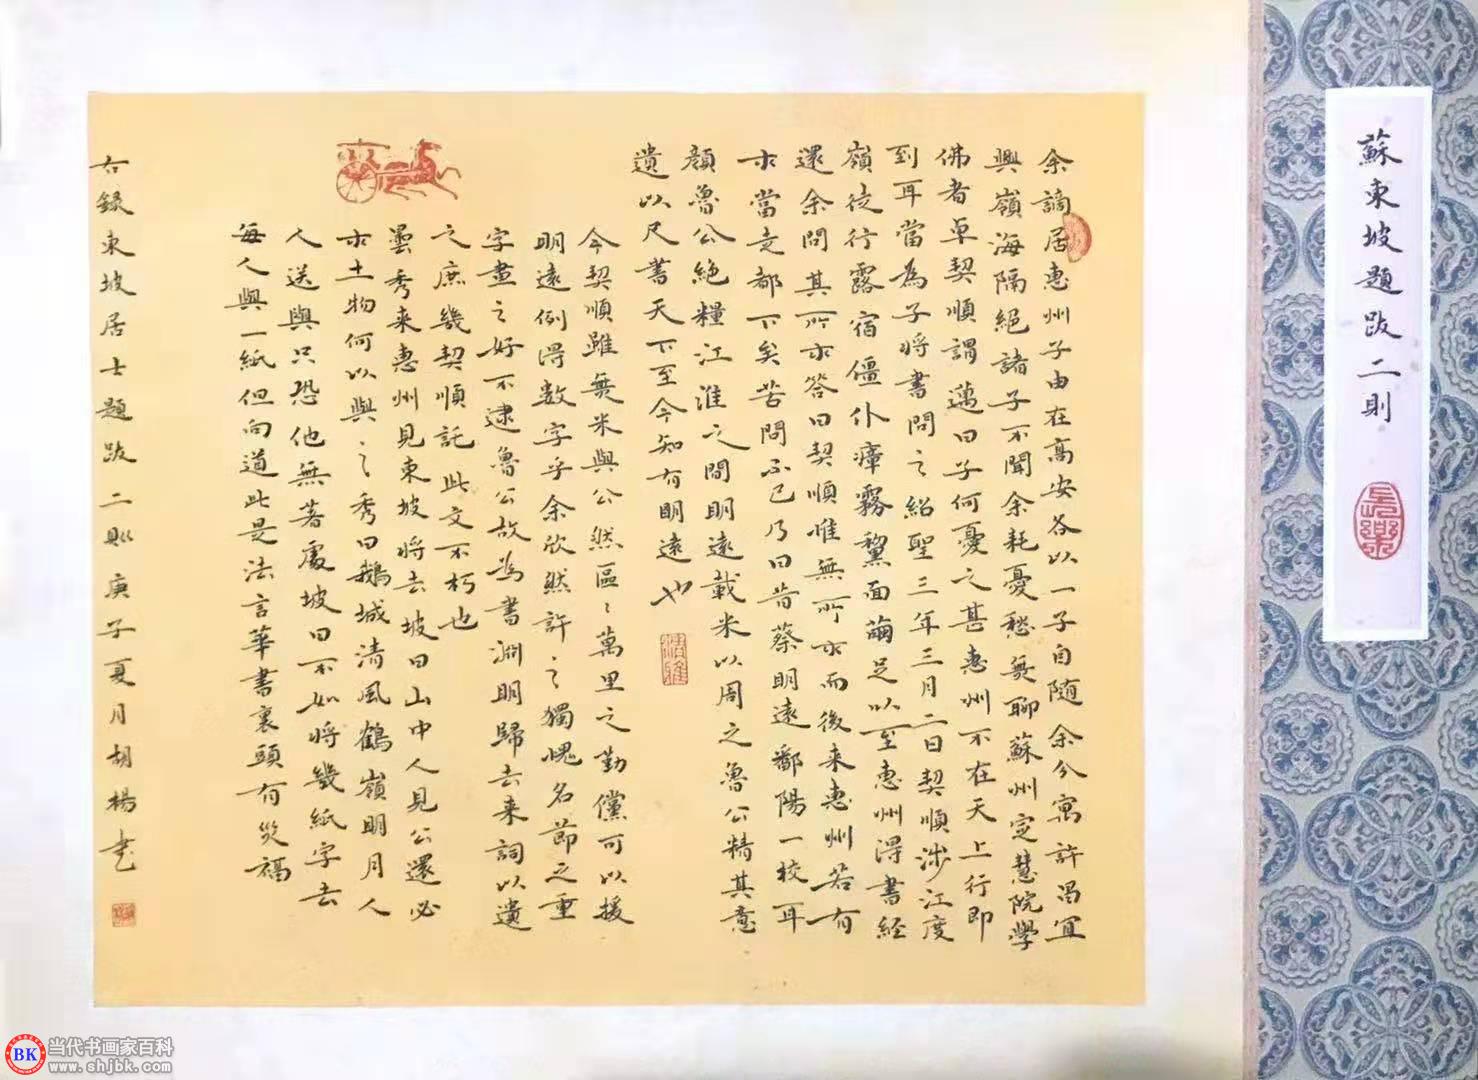 蘇東坡題跋二則
長樂
余謫居惠州子由在高安各以一子自隨余分寓許昌宜
興嶺海隔絕諸子不聞余耗憂愁無聊蘇州定慧院學
佛者卓契順謂邁曰子何憂之甚惠州不在天上行即
到耳當為子將書問之紹聖三年三月二日契順涉江度
嶺徒行露宿僵仆瘴霧黧面繭足以至惠州得書經
還余問其所求答曰契順惟無所求而後来惠州若有
求當走都下矣苦問不已乃曰昔蔡明遠鄱陽一校耳
顏魯公絕糧江淮之間明遠載米以周之魯公精其意
遺以尺書天下至今知有明遠也
今契順雖無米與公然區〻萬里之勤儻可以援
明遠例得数字乎余欣然許之獨愧名節之重
字畫之好不逮魯公故為書淵明歸去来詞以遺
之庶幾契順託此文不朽也
曇秀来惠州見東坡將去坡曰山中人見公還必
求土物何以與〻之秀曰鵝城清風鶴嶺明月人
人送與只恐他無著處坡曰不如將幾紙字去
每人與一紙但向道此是法言華書裏頭有災福
右錄東坡居士題跋二則庚子夏月胡楊書
BK
当代书画家百科
www.shjbk.com